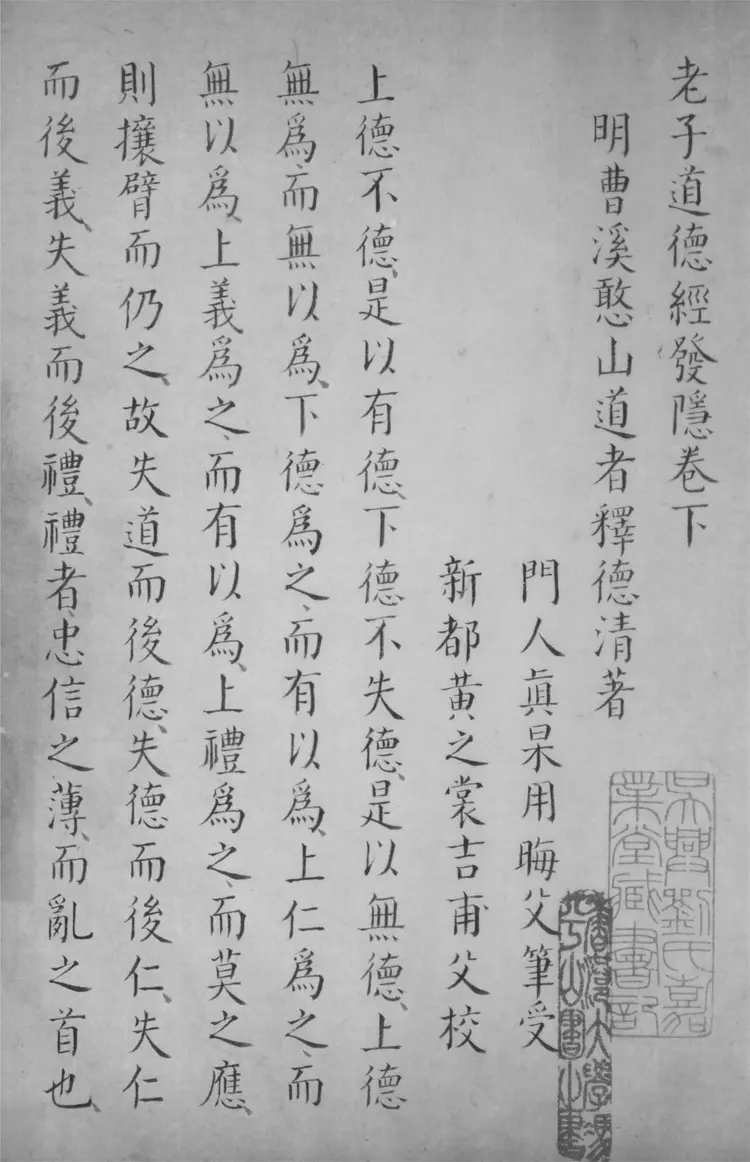 老子道德經發隱卷下
明曹溪憨山道者釋德清著
門人眞杲用晦父筆受
新都黃之裳吉甫父校
上德不德、是以有德、下德不失德、是以無德、上德
無爲、而無以爲、下德爲之、而有以爲、上仁爲之、而
無以爲、上義爲之、而有以爲、上禮爲之、而莫之應、
則攘臂而仍之、故失道而後德、失德而後仁、失仁
而後義、失義而後禮、禮者、忠信之薄、而亂之首也、
吳興劉氏嘉
業堂藏書記